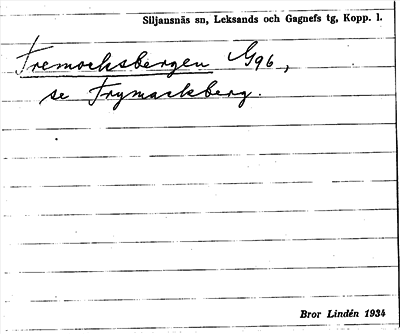 Siljansnäs sn, Leksands och Gagnefs tg, Kopp. l.
Tremocksbergen G96,
se Trymackberg.
Bror Lindén 1934